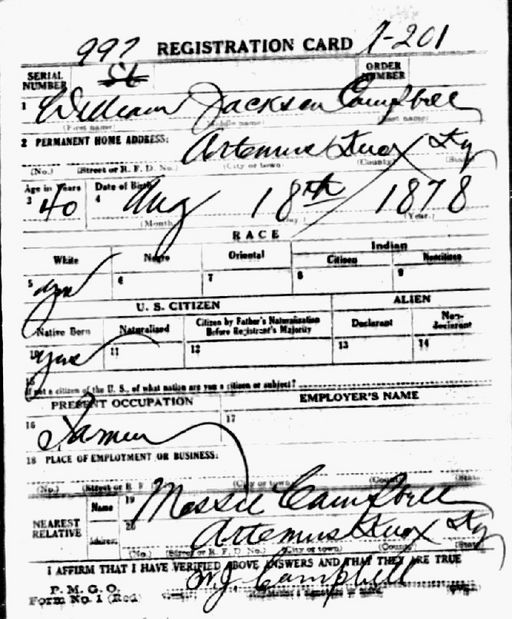 997 REGISTRATION CARD A-201
SERIAL NUMBER ORDER NUMBER
1 William Jackson Campbell
(First name) (Middle name) (Last name)
2 PERMANENT HOME ADDRESS: Artemus Knox Ky
(No.) (Street or R. F. D. No.) (City or town) (County) (State)
Age in Years Date of Birth
3 40 4 Aug 18th 1878
(Month) (Day) (Year)
RACE
White Negro Oriental Indian
Citizen Noncitizen
5 yes 6 7 8 9
U. S. CITIZEN ALIEN
Native Born Naturalized Citizen by Father's Naturalization Before Registrant's Majority Declarant Non-declarant
10 yes 11 12 13 14
15 If not a citizen of the U. S., of what nation are you a citizen or subject?
PRESENT OCCUPATION EMPLOYER'S NAME
16 Farmer 17
18 PLACE OF EMPLOYMENT OR BUSINESS:
(No.) (Street or R. F. (City or town) (County) (State)
NEAREST RELATIVE Name 19 Mossie Campbell
Address 20 Artemus Knox Ky
(No.) (Street or R. F. D. No.) (City or town) (County) (State)
I AFFIRM THAT I HAVE VERIFIED ABOVE ANSWERS AND THAT THEY ARE TRUE
P. M. G. O. W J Campbell
Form No. 1 (Red)